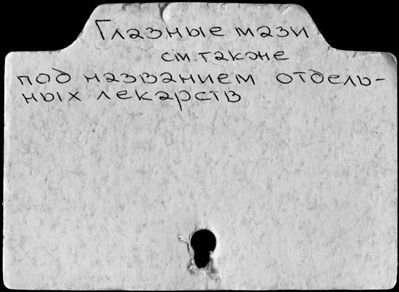 Глазные мази
см. также
под названием отдель-
ных лекарств